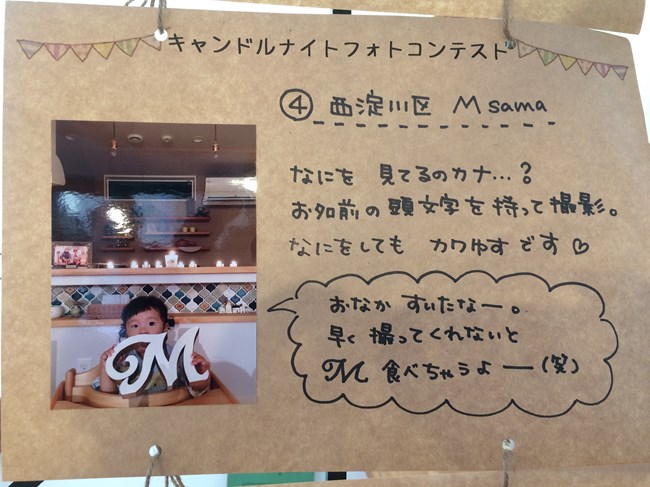 キャンドルナイトフォトコンテスト
④ 西淀川区 M sama
なにを 見てるのカナ…?
お名前の頭文字を持って撮影。
なにをしても カワゆすです♡
おなか すいたなー。
早く 撮ってくれないと
M 食べちゃうよー(笑)
M